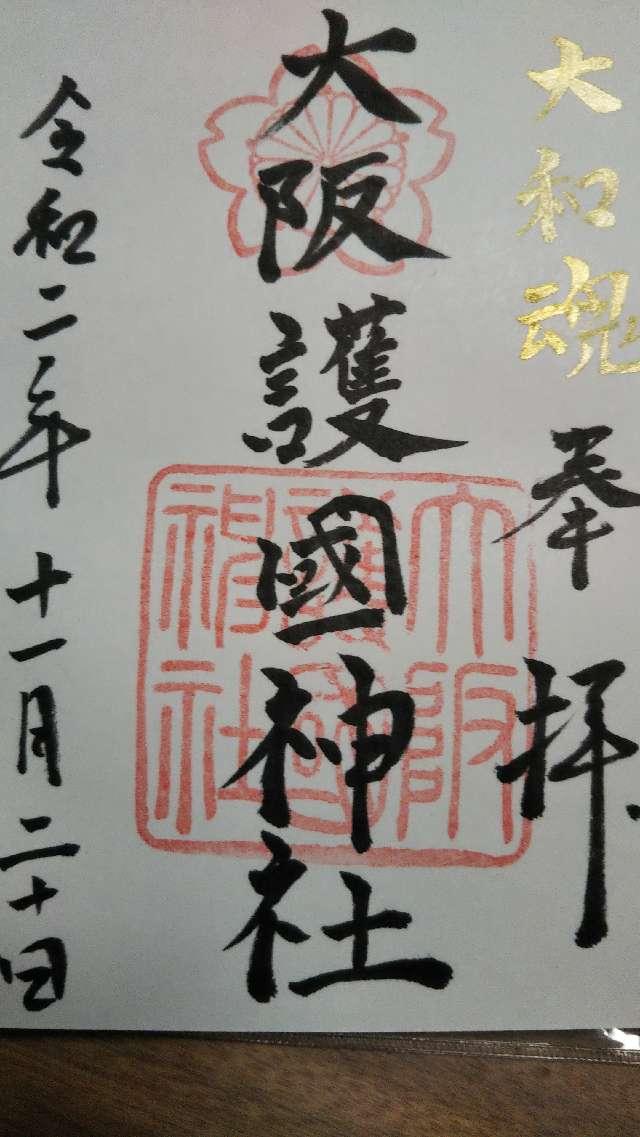 大和魂
奉拝
大阪護國神社
大阪
護國
神社
令和二年十一月二十日